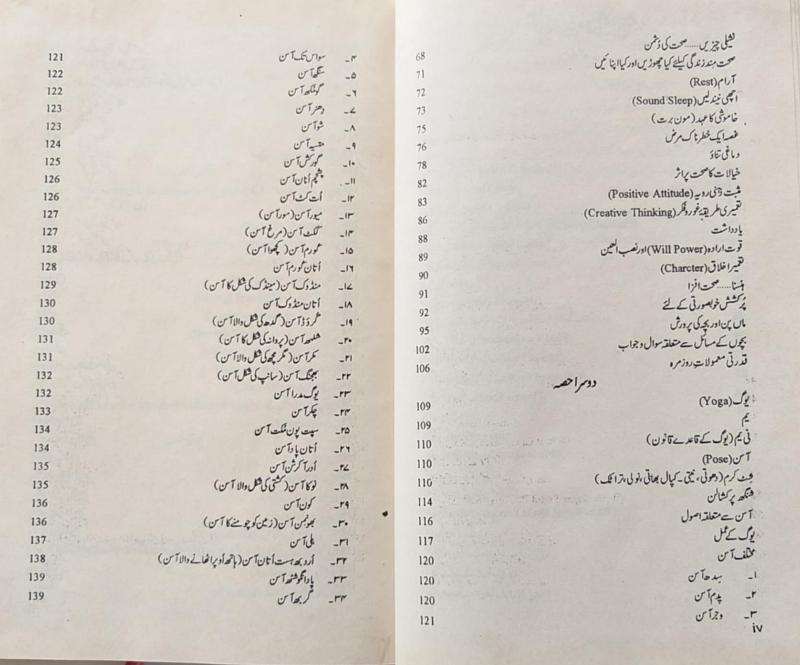 نشیلی چیزیں......صحت کی دشمن 68
صحت مند زندگی کیلئے کیا چھوڑیں اور کیا اپنائیں 71
آرام (Rest) 72
اچھی نیند لیں (Sound Sleep) 73
خاموشی کا عہد (مون برت) 75
غصہ ایک خطرناک مرض 76
دماغی تناؤ 78
خیالات کا صحت پر اثر 82
مثبت ذہنی رویہ (Positive Attitude) 83
تعمیری طریقۂ غور و فکر (Creative Thinking) 86
یادداشت 88
قوت ارادہ (Will Power) اور نصب العین 89
تعمیر اخلاق (Charcter) 90
ہنسنا......صحت افزا 91
پُرکشش خوبصورتی کے لئے 92
ماں پن اور بچہ کی پرورش 95
بچوں کے مسائل سے متعلقہ سوال و جواب 102
قدرتی معمولات روزمرہ 106
دوسرا حصہ
یوگ (Yoga) 109
یم 109
نی یم (یوگ کے قاعدے قانون) 110
آسن (Pose) 110
شٹ کرم (دھوتی، نیتی۔ کپال بھاتی، نولی، تراٹک) 110
شنکھ پرکشالن 114
آسن سے متعلقہ اصول 116
یوگ کے عمل 117
مختلف آسن 120
۱۔ سدھ آسن 120
۲۔ پدم آسن 120
۳۔ وجر آسن 121
iv
۴۔ سواس تک آسن 121
۵۔ سنگھ آسن 122
۶۔ گومُکھ آسن 122
۷۔ دھنر آسن 123
۸۔ شو آسن 123
۹۔ آسن 124
۱۰۔ گورکش آسن 125
۱۱۔ پشچم اُتان آسن 126
۱۲۔ اُت کٹ آسن 126
۱۳۔ میور آسن (مور آسن) 127
۱۴۔ ککٹ آسن (مرغ آسن) 127
۱۵۔ کورم آسن (کچھوا آسن) 128
۱۶۔ اُتان کورم آسن 128
۱۷۔ منڈوک آسن (مینڈک کی شکل کا آسن) 129
۱۸۔ اُتان منڈوک آسن 130
۱۹۔ گروڈ آسن (گدھ کی شکل والا آسن) 130
۲۰۔ شلبھ آسن (پروانہ کی شکل کا آسن) 131
۲۱۔ مکر آسن (مگرمچھ کی شکل والا آسن) 131
۲۲۔ بھجنگ آسن (سانپ کی شکل آسن) 132
۲۳۔ یوگ مدرا آسن 132
۲۴۔ چکر آسن 133
۲۵۔ سپت پون مکت آسن 134
۲۶۔ اُتان پاد آسن 134
۲۷۔ اُدر آکرشن آسن 135
۲۸۔ نوکا آسن (کشتی کی شکل والا آسن) 135
۲۹۔ کون آسن 136
۳۰۔ بھونمن آسن (زمین کو چومنے کا آسن) 136
۳۱۔ بلی آسن 137
۳۲۔ اُردبھ ہست اُتان آسن (ہاتھ اُوپر اٹھانے والا آسن) 138
۳۳۔ پادانگوشٹھ آسن 139
۳۴۔ گربھ آسن 139